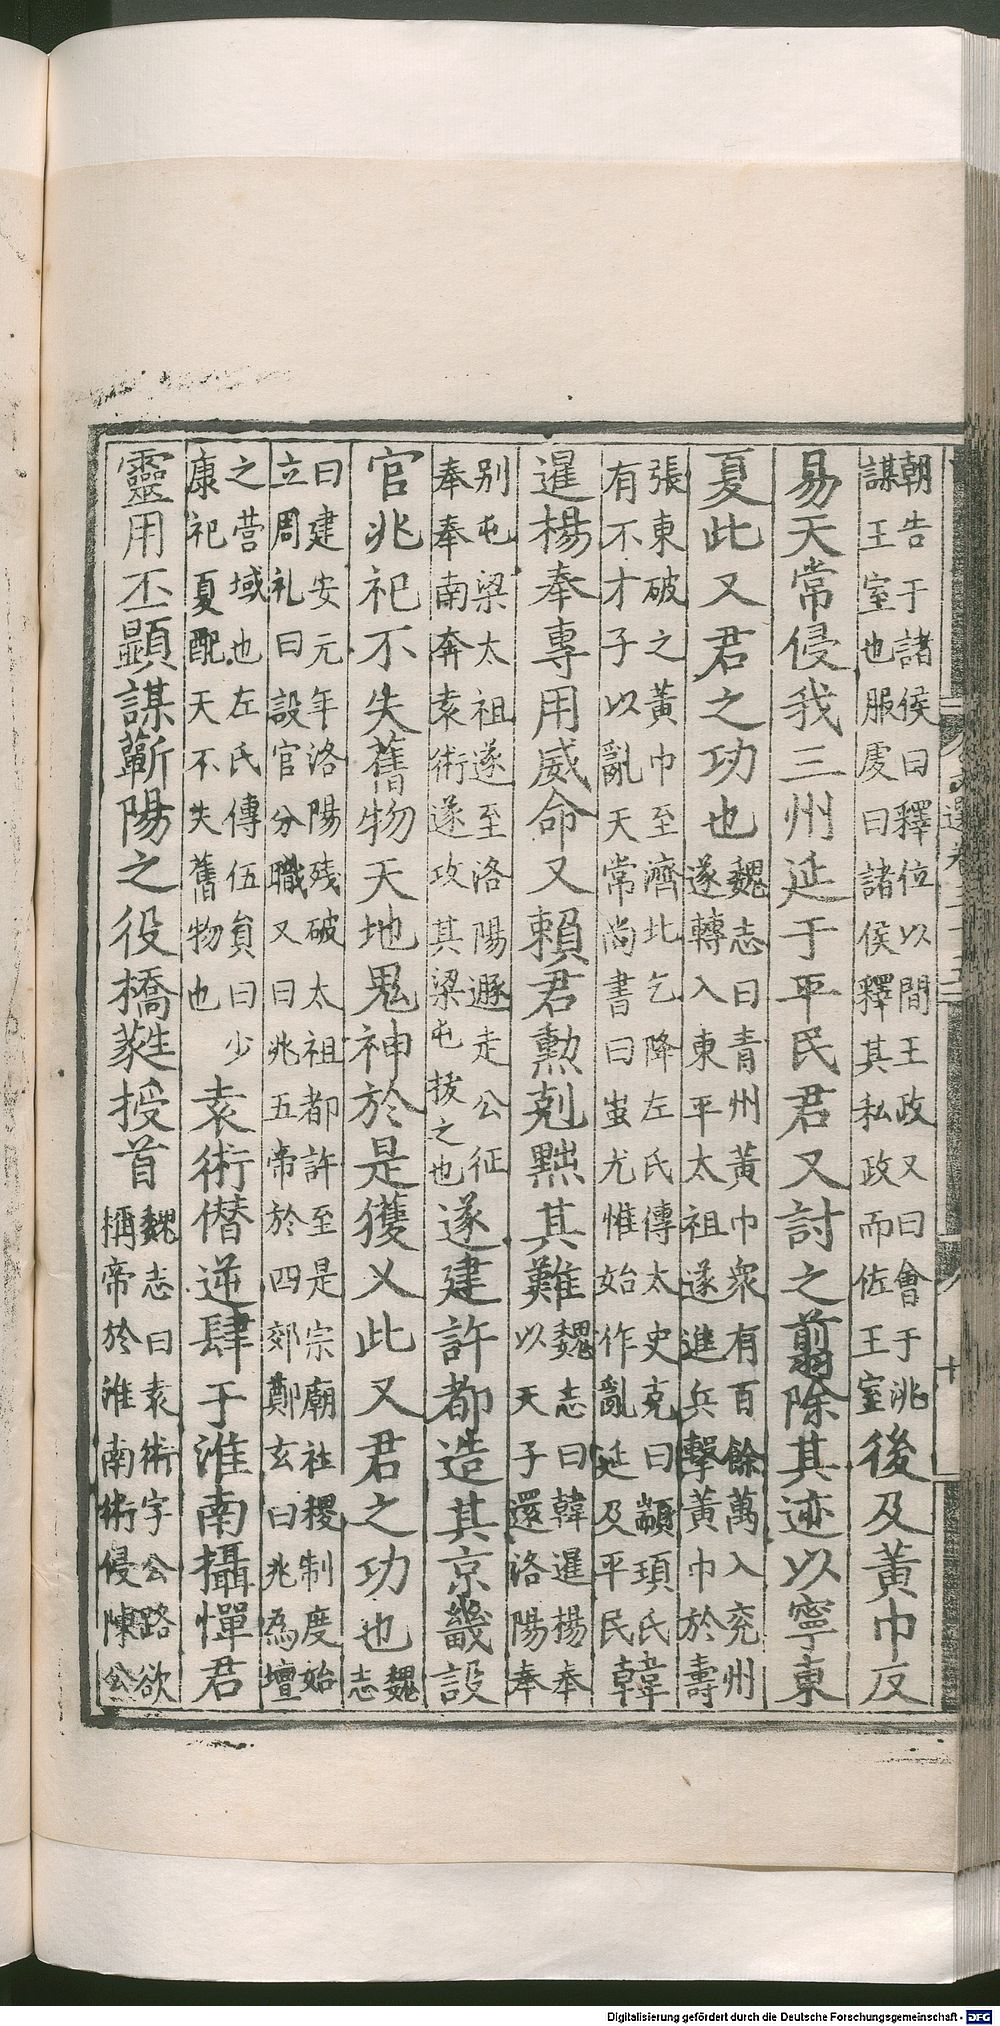 朝告于諸侯曰釋位以間王政又曰會于洮
謀王室也服虔曰諸侯釋其私政而佐王室
後及黃巾反
易天常侵我三州延于平民君又討之翦除其迹以寧東
夏此又君之功也
魏志曰青州黃巾衆有百餘萬入兖州
遂轉入東平太祖遂進兵擊黃巾於壽
張東破之黃巾至濟北乞降左氏傳太史克曰顓頊氏
有不才子以亂天常尚書曰蚩尤惟始作亂延及平民
韓
暹楊奉專用威命又賴君勳剋黜其難
魏志曰韓暹楊奉
以天子還洛陽奉
别屯梁太祖遂至洛陽遯走公征
奉奉南奔袁術遂攻其梁屯拔之也
遂建許都造其京畿設
官兆祀不失舊物天地鬼神於是獲乂此又君之功也
魏
志
曰建安元年洛陽残破太祖都許至是宗廟社稷制度始
立周礼曰設官分職又曰兆五帝於四郊鄭玄曰兆為壇
之营域也左氏傳伍員曰少
康祀夏配天不失舊物也
袁術僣逆肆于淮南攝憚君
靈用丕顯謀蘄陽之役橋蕤授首
魏志曰袁術字公路欲
稱帝於淮南術侵陳公
Digitalisierung gefördert durch die Deutsche Forschungsgemeinschaft - DFG